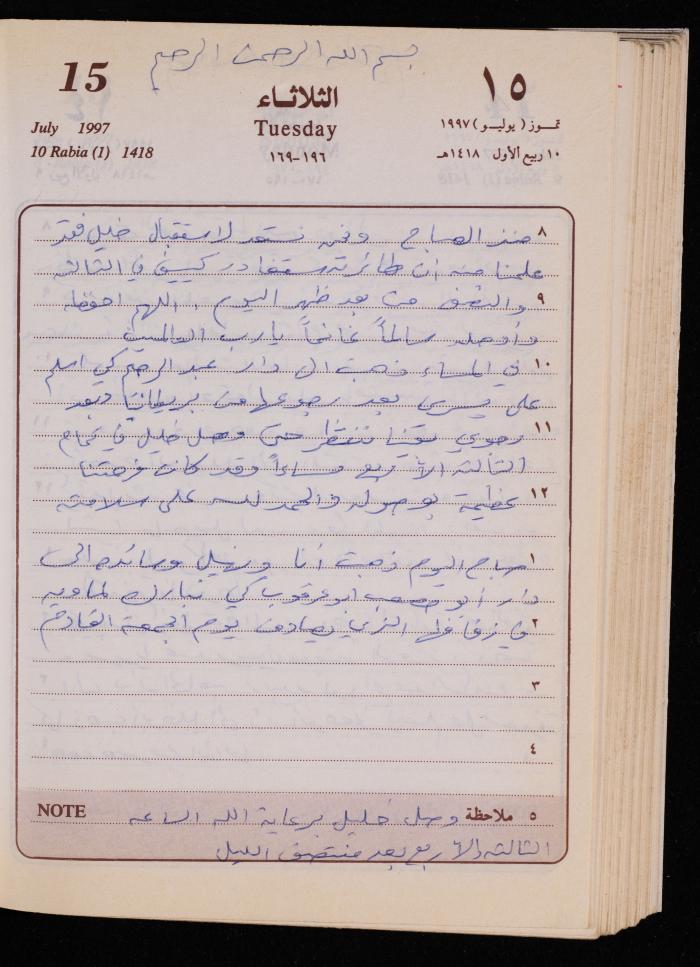 بسم الله الرحمن الرحيم
15
الثلاثاء
١٥
July 1997
Tuesday
تموز (يوليو) ١٩٩٧
10 Rabia (1) 1418
١٩٦-١٦٩
١٠ ربيع الأول ١٤١٨هـ
٨ منذ الصباح ونحن نستعد لاستقبال خليل فقد
علمنا منه أن طائرته ستغادر في الثالثة
٩ والنصف من بعد ظهر اليوم، اللهم احفظه
وأوصله سالماً غانماً يا رب العالمين
١٠ في المساء ذهبت الى دار عبد الرحيم كي اسلم
على يسرى بعد رجوعها من بريطانيا وبعد
١١ رجوعي بقينا ننتظر حتى وصل خليل في تمام
الثالثة الا ربع مساءاً وقد كانت فرحتنا
١٢ عظيمة بوصوله والحمد لله على سلامته
١ صباح اليوم ذهبت أنا و وسائده الى
دار أبو كي نبارك لماويه
٢ في زفافها الذي يصادف يوم الجمعة القادم
٣
٤
NOTE
٥ ملاحظة وصل خليل برعاية الله الساعة
الثالثة الا ربع بعد منتصف الليل